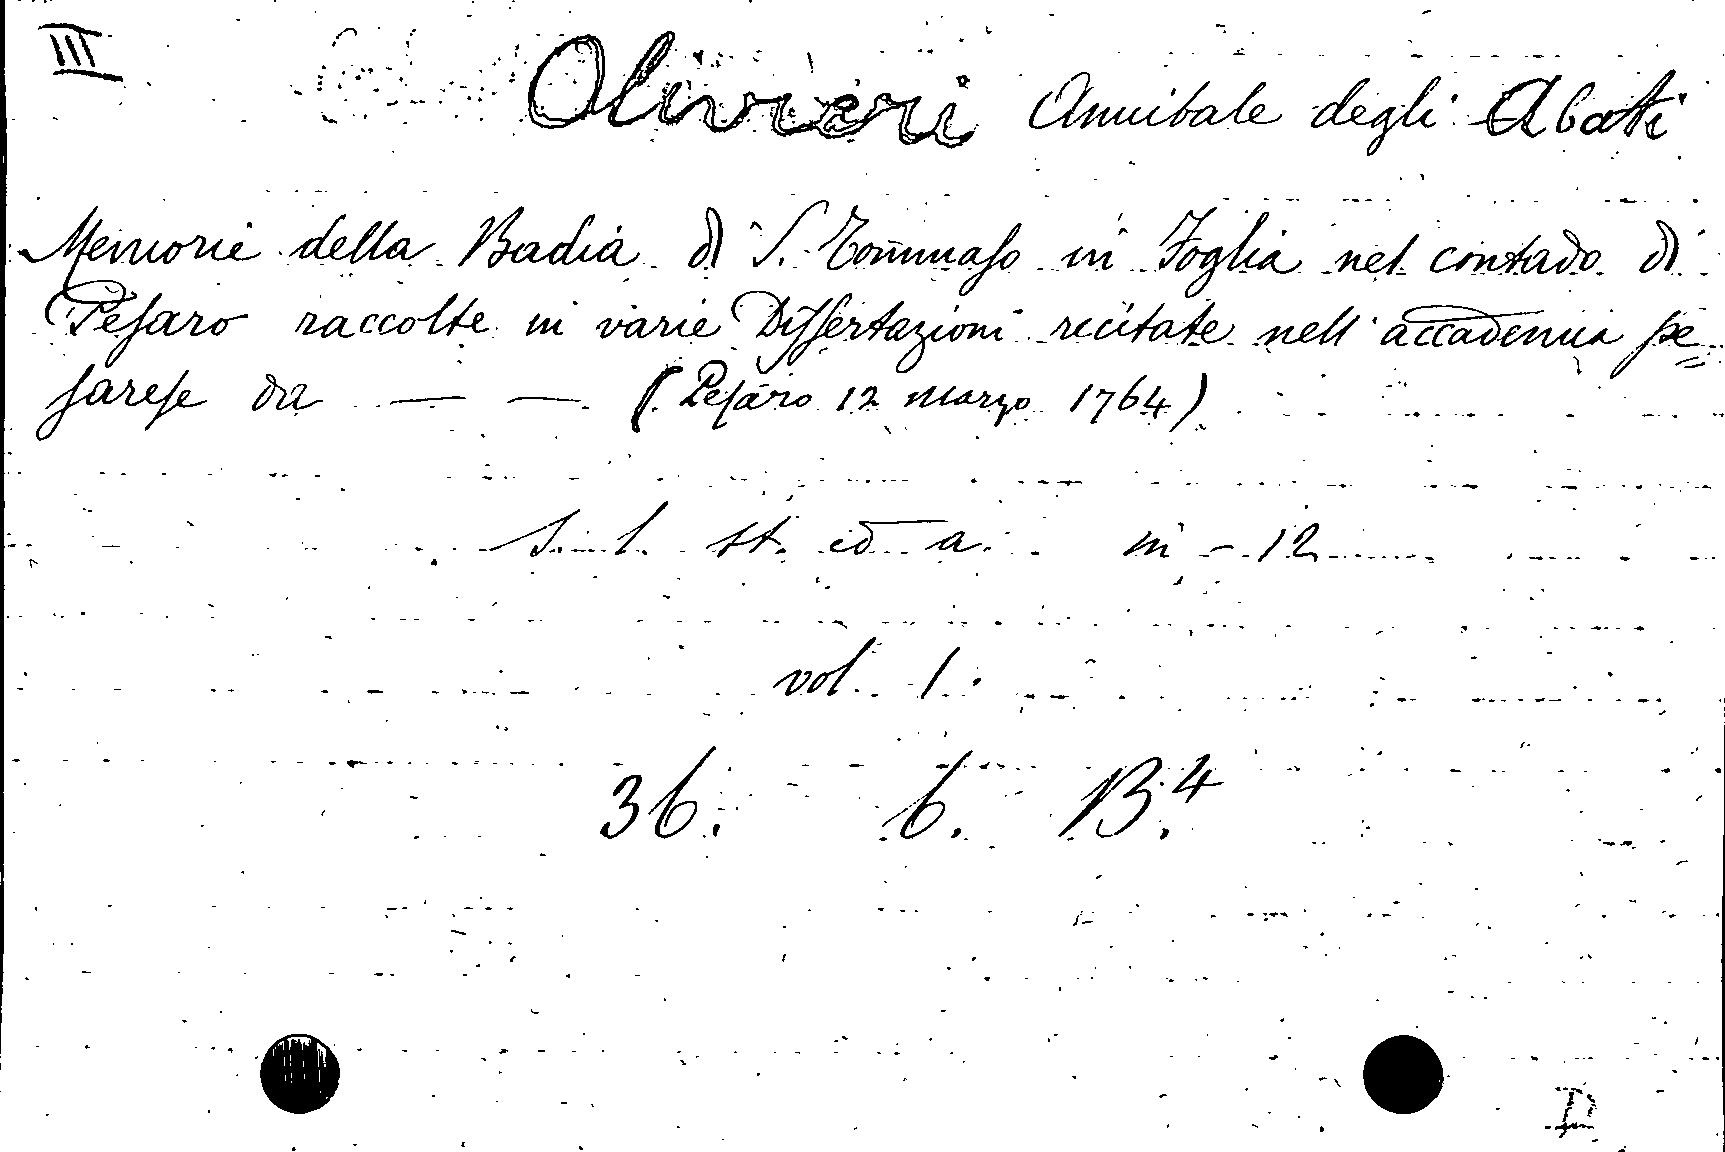 III
Olivieri Annibale degli Abati
Memorie della Badia di S. Tommaso in Foglia nel contado di
Pesaro raccolte in varie Dissertazioni recitate nell' accademia pe=
sarese da — — (Pesaro 12 Marzo 1764)
S. n. l. st. ed a. in - 12
vol. 1.
36. 6. B.4
D